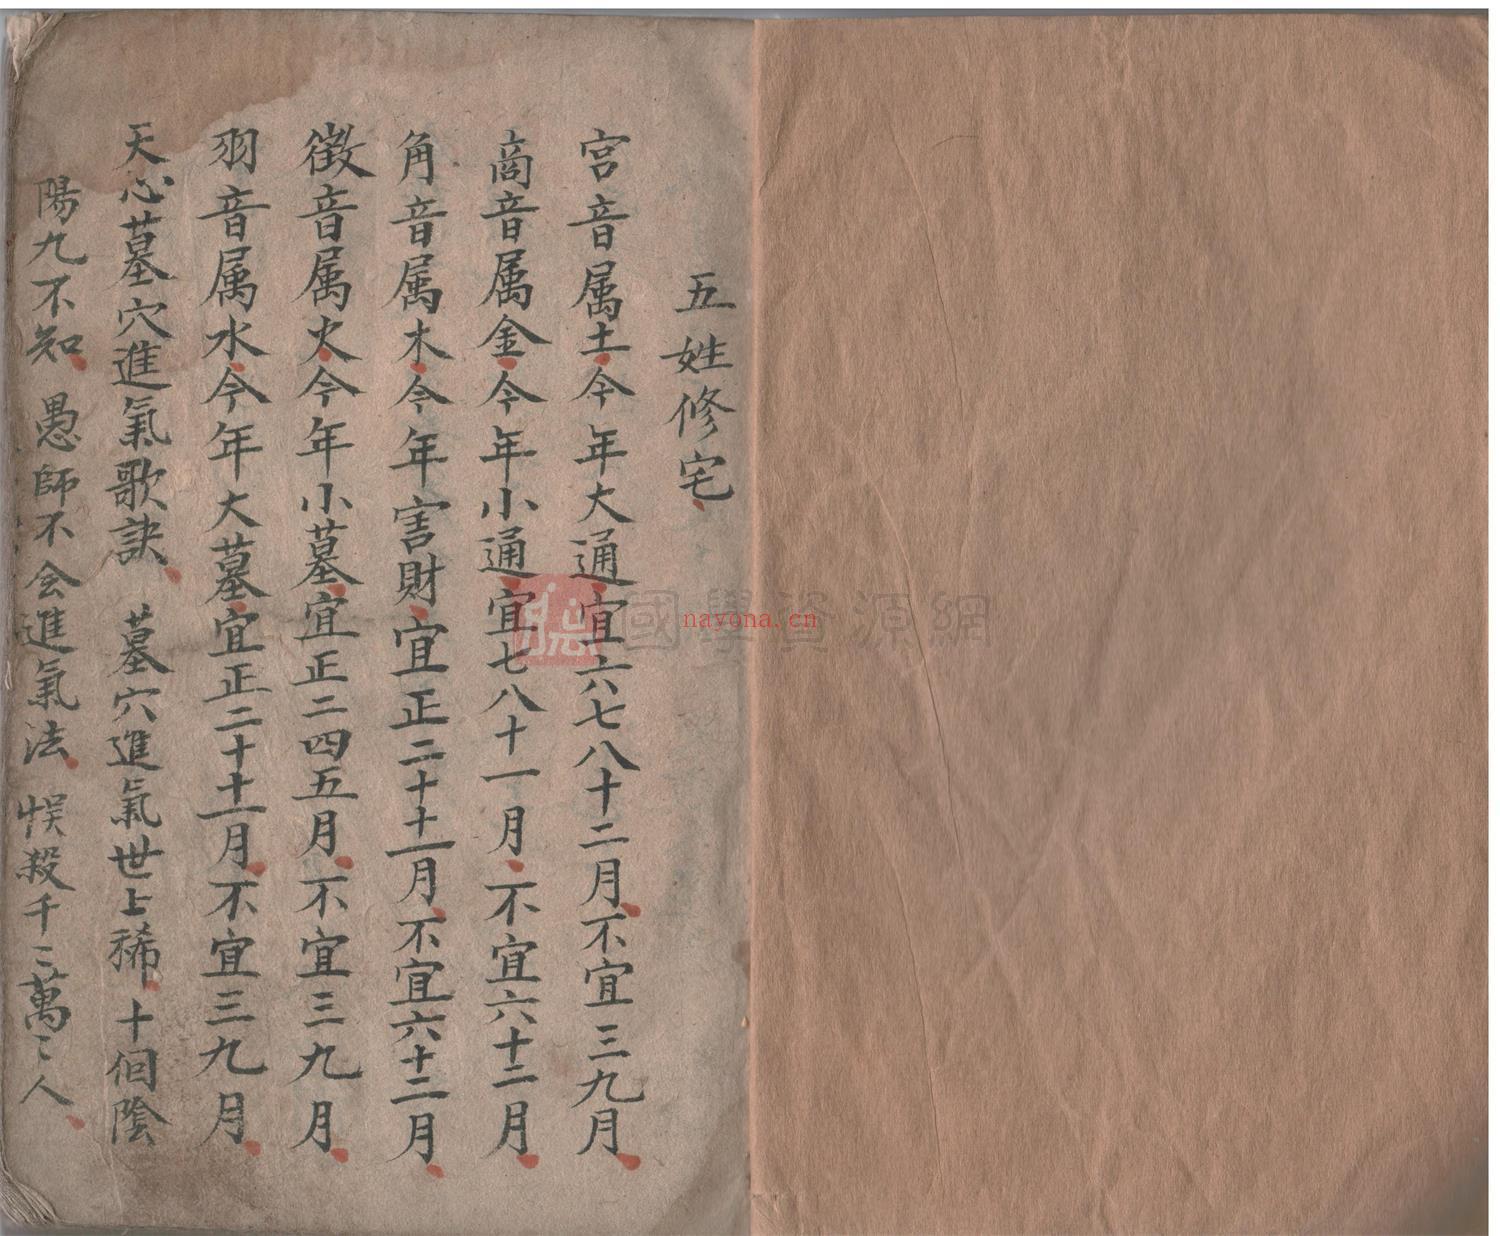 五姓修宅
宮音属土今年大通宜六七八十二月不宜三九月
商音属金今年小通宜七八十一月不宜六十二月
角音属木今年害財宜正二十十一月不宜六十二月
徵音属火今年小墓宜正二四五月不宜三九月
羽音属水今年大墓宜正二十十一月不宜三九月
天心墓穴進氣歌訣 墓穴進氣世上稀十個陰
陽九不知 愚師不会進氣法 悮殺千〻萬〻人
國學資源網
nayona.cn